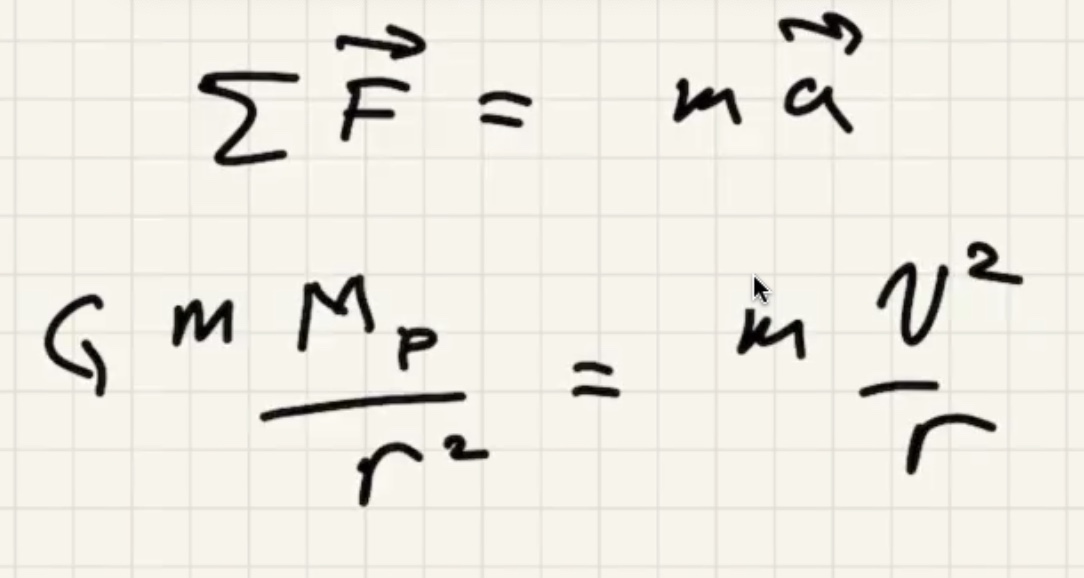 ∑ F⃗ = m a⃗
G m M_p / r² = m v² / r